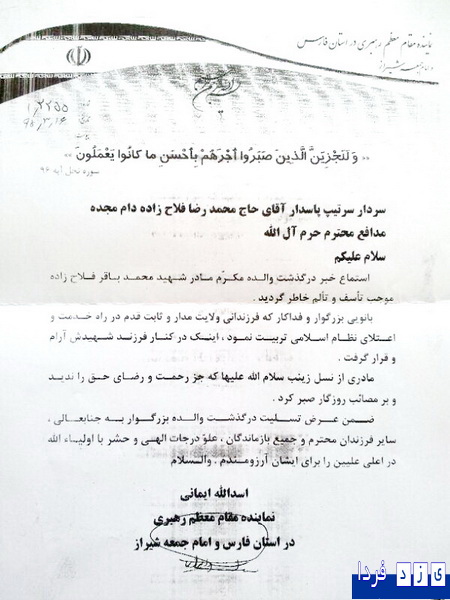 نماینده مقام معظم رهبری در استان فارس
و امام جمعه شیراز
۱۰۲۲۵۵
۹۵,۳,۱۶
«« وَ لَنَجْزِیَنَّ الَّذینَ صَبَرُوا أَجْرَهُمْ بِأَحْسَنِ ما کانُوا یَعْمَلُونَ »»
سوره نحل آیه ۹۶
سردار سرتیپ پاسدار آقای حاج محمد رضا فلاح زاده دام مجده
مدافع محترم حرم آل الله
سلام علیکم
استماع خبر درگذشت والده مکرّم مادر شهید محمد باقر فلاح زاده
موجب تأسف و تألم خاطر گردید .
بانویی بزرگوار و فداکار که فرزندانی ولایت مدار و ثابت قدم در راه خدمت و
اعتلای نظام اسلامی تربیت نمود ، اینک در کنار فرزند شهیدش آرام
و قرار گرفت .
مادری از نسل زینب سلام الله علیها که جز رحمت و رضای حق را ندید
و بر مصائب روزگار صبر کرد .
ضمن عرض تسلیت درگذشت والده بزرگوار به جنابعالی ،
سایر فرزندان محترم و جمیع بازماندگان ، علوّ درجات الهی و حشر با اولیاء الله
در اعلی علیین را برای ایشان آرزومندم . والسلام
اسدالله ایمانی
نماینده مقام معظم رهبری
در استان فارس و امام جمعه شیراز
یزد فردا